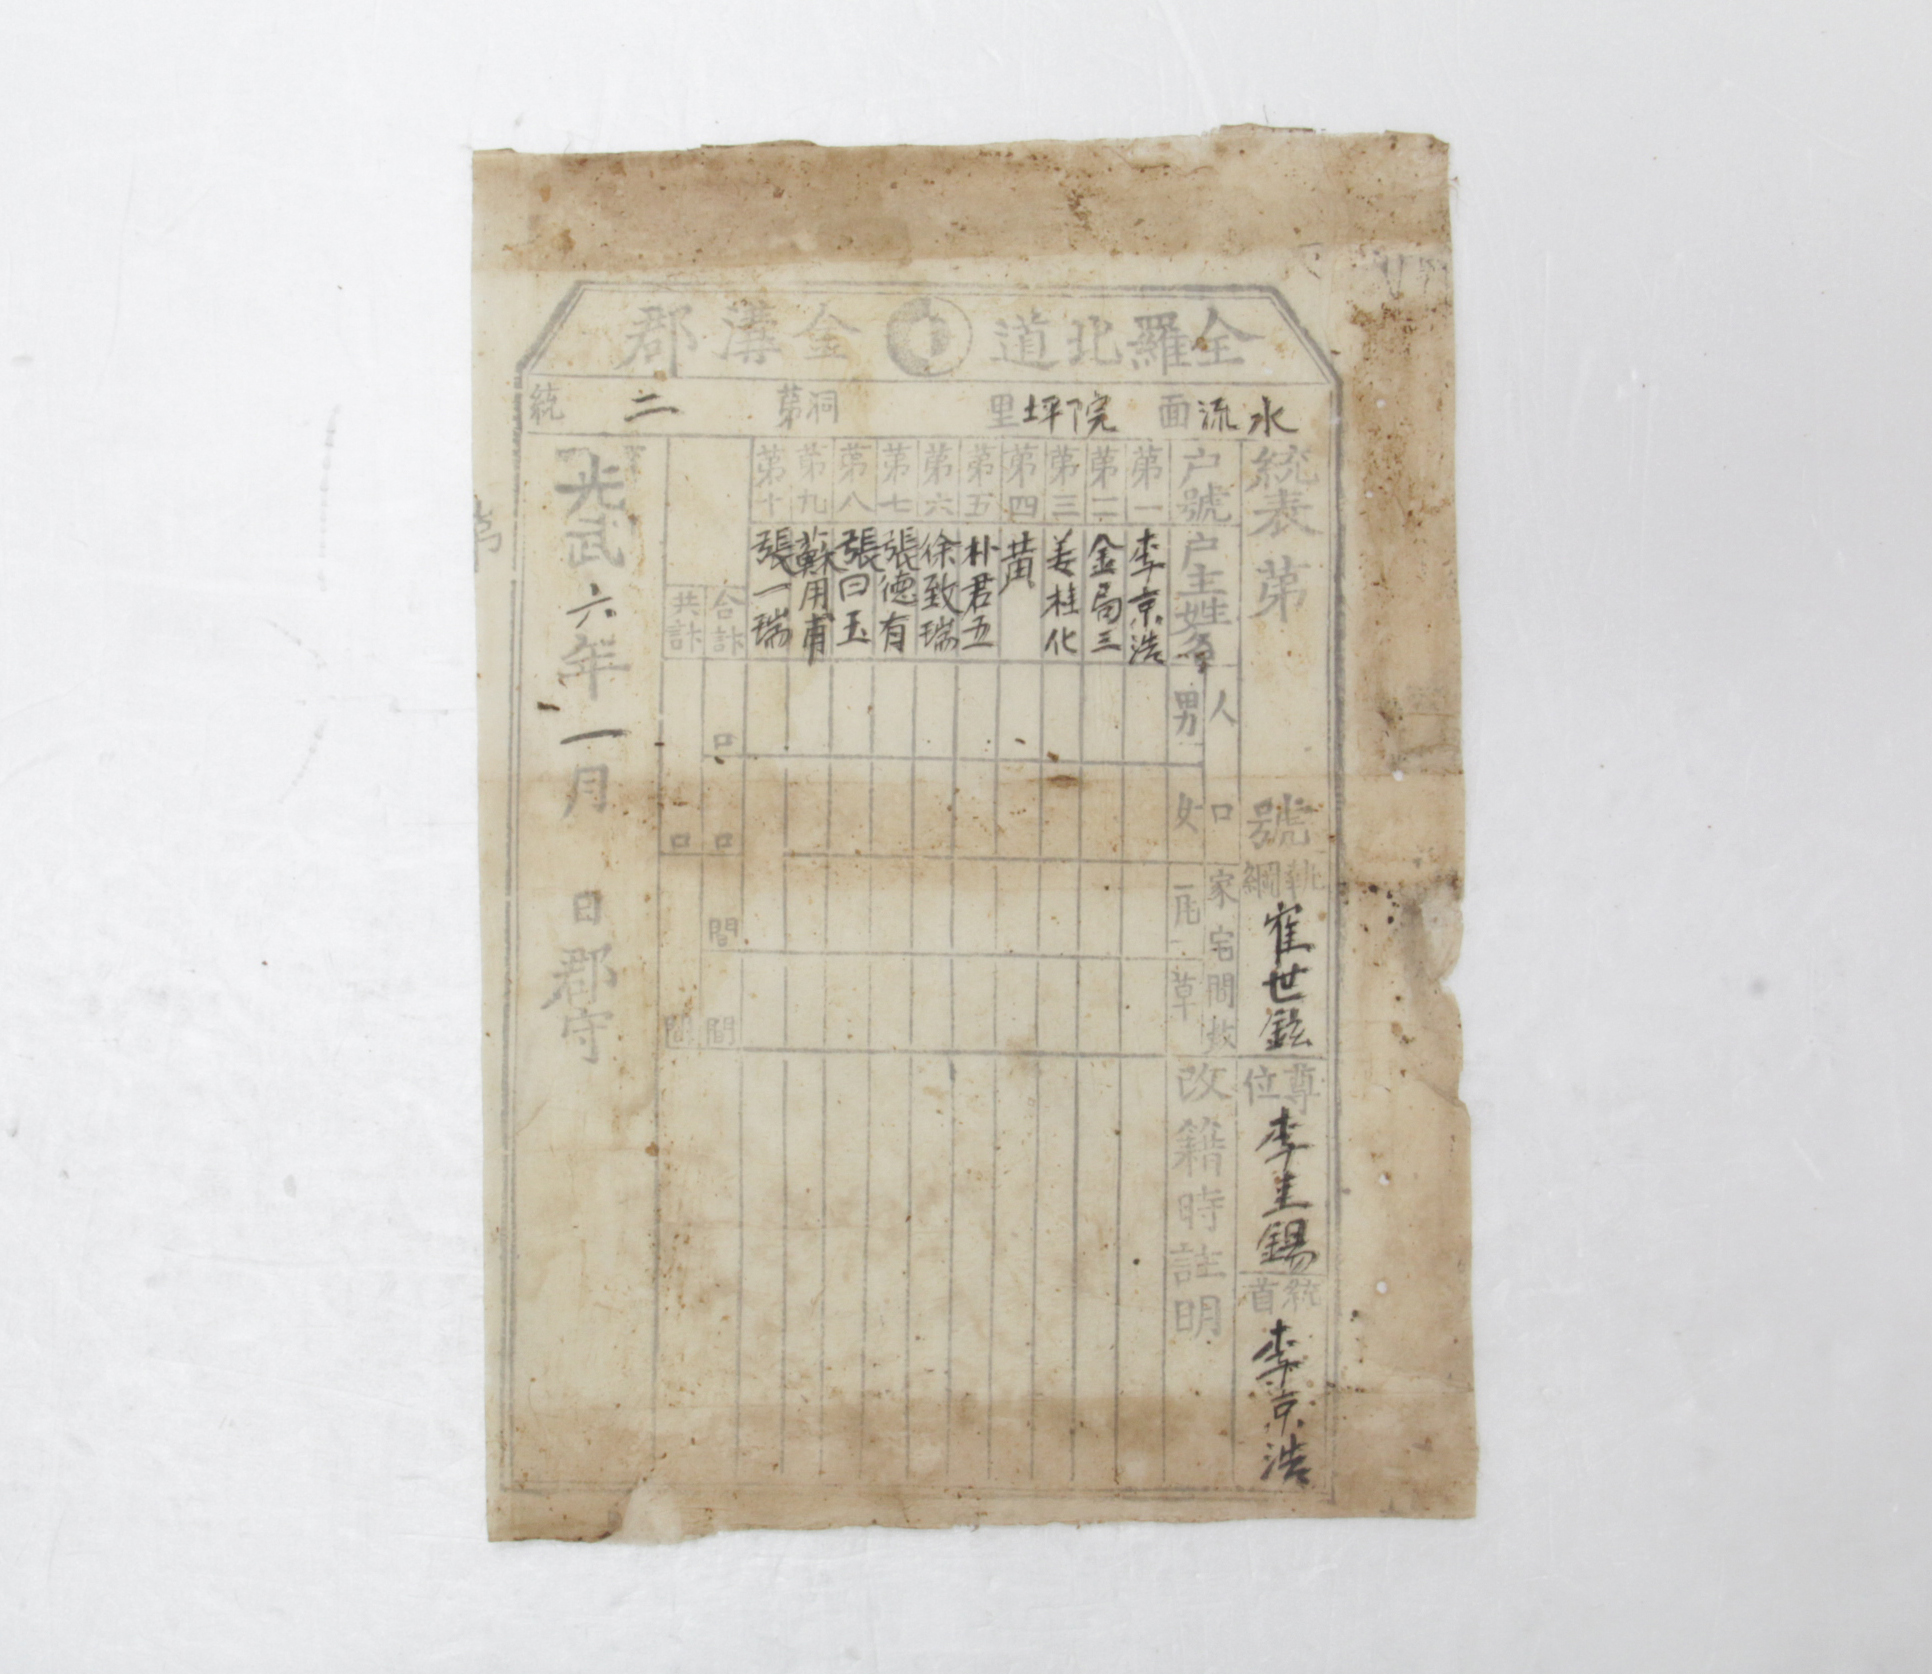 全羅北道 金溝郡
水流面 院坪里 洞第二統
統表第 號
執綱 崔世鉉
尊位 李圭錫
統首 李京浩
戶號 戶主姓名 人口 男 女 家宅間數 瓦 草 改籍時註明
第一 李京浩
第二 金局三
第三 姜桂化
第四 黃
第五 朴君五
第六 徐致瑞
第七 張德有
第八 張曰玉
第九 蘇用甫
第十 張一瑞
合計 口 口 間 間
共計 口 間
光武六年一月 日郡守